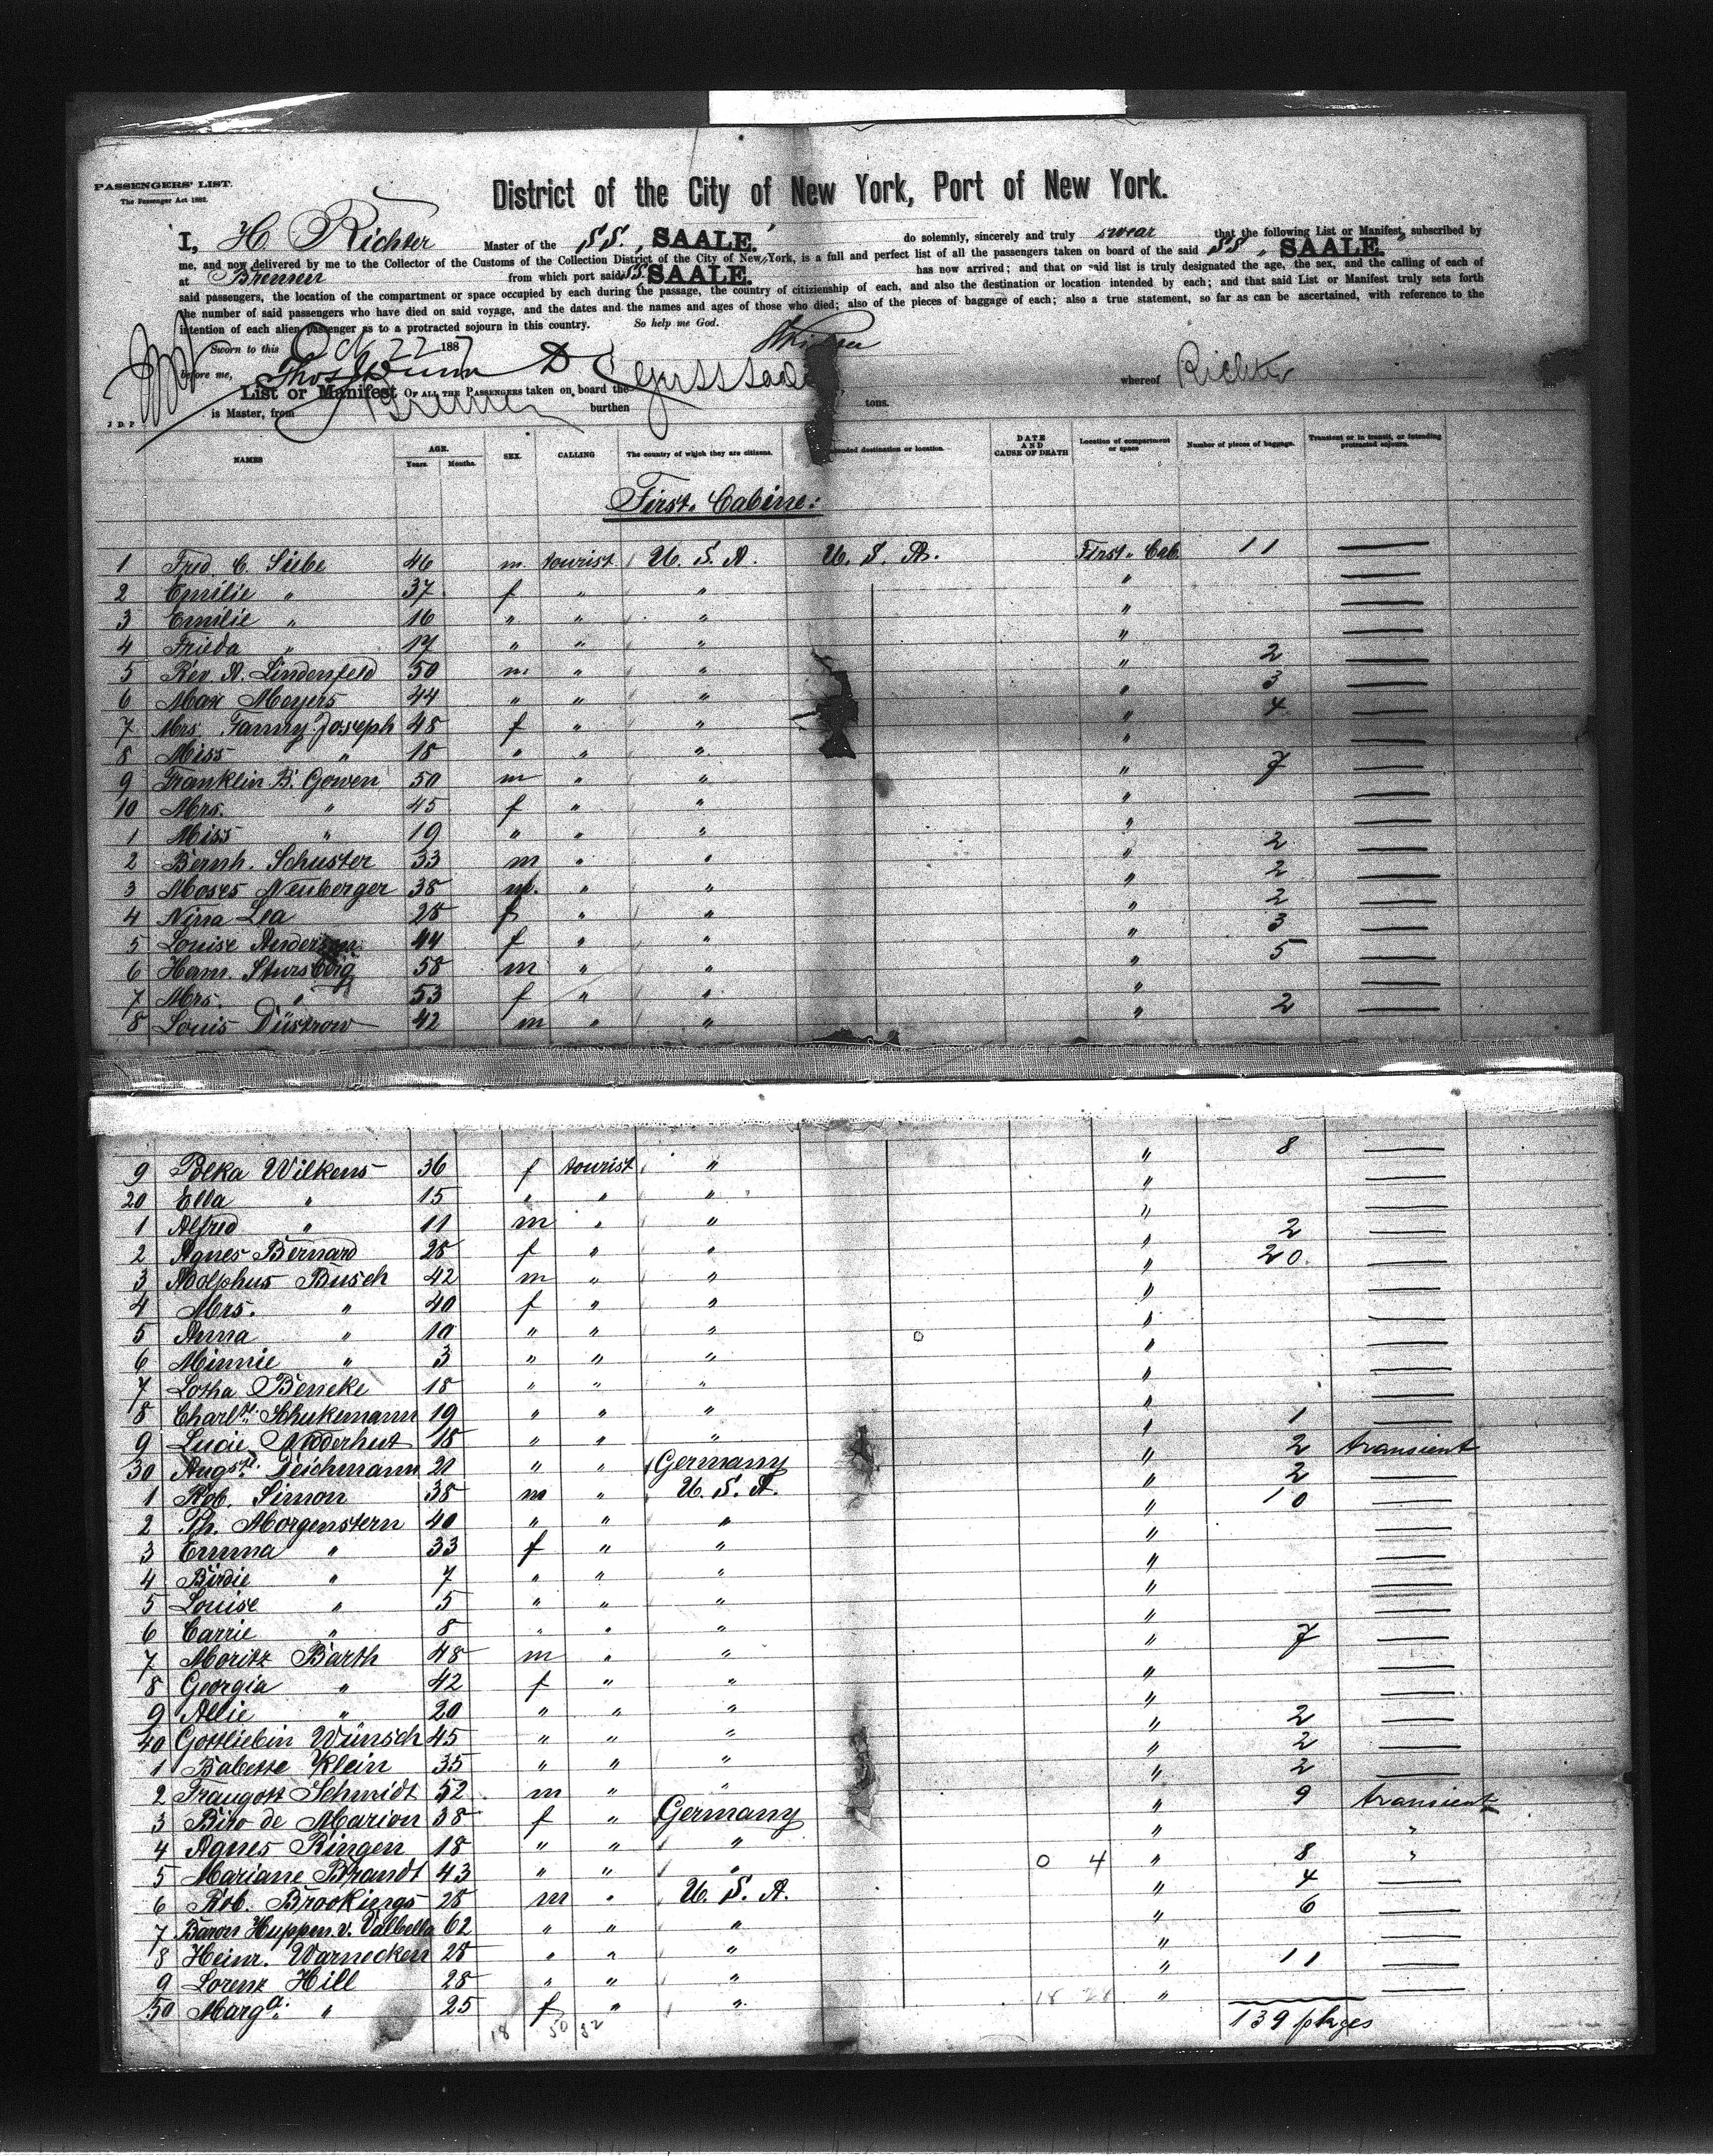 PASSENGERS' LIST.
The Passenger Act 1882.
District of the City of New York, Port of New York.
I, H Richter Master of the SS. SAALE. do solemnly, sincerely and truly swear that the following List or Manifest, subscribed by
me, and now delivered by me to the Collector of the Customs of the Collection District of the City of New York, is a full and perfect list of all the passengers taken on board of the said SS. SAALE.
at Bremen from which port said SS. SAALE. has now arrived; and that on said list is truly designated the age, the sex, and the calling of each of
said passengers, the location of the compartment or space occupied by each during the passage, the country of citizenship of each, and also the destination or location intended by each; and that said List or Manifest truly sets forth
the number of said passengers who have died on said voyage, and the dates and the names and ages of those who died; also of the pieces of baggage of each; also a true statement, so far as can be ascertained, with reference to the
intention of each alien passenger as to a protracted sojourn in this country. So help me God.
Sworn to this Oct 22 1887
before me, Thos Dunn D C whereof Richter
List or Manifest OF ALL THE PASSENGERS taken on board the
is Master, from Bremen burthen tons.
J D P
NAMES AGE. Years. Months. SEX. CALLING The country of which they are citizens. Intended destination or location. DATE AND CAUSE OF DEATH Location of compartment or space Number of pieces of baggage. Transient or in transit, or intending protracted sojourn.
First. Cabine:
1 Fred C. Siebe 46 m. tourist U. S. A. U. S. A. First. Cab 11 —
2 Emilie " 37 f " " " —
3 Emilie " 16 " " " " —
4 Frieda " 14 " " " " —
5 Rev. A. Lindenfeld 50 m " " " 2 —
6 Max Meyers 44 " " " " 3 —
7 Mrs. Fanny Joseph 48 f " " " 4 —
8 Miss " 18 " " " " —
9 Franklin B. Gowen 50 m " " " 7 —
10 Mrs. " 45 f " " " —
1 Miss " 19 " " " " —
2 Bernh. Schuster 33 m " " " 2 —
3 Moses Neuberger 38 m. " " " 2 —
4 Nina Lea 28 f " " " 2 —
5 Louise Anderson 44 f " " " 3 —
6 Herm. Stursberg 58 m " " " 5 —
7 Mrs. " 53 f " " " —
8 Louis Düstrow 42 m " " " 2 —
9 Polka Wilkens 36 f tourist " " 8 —
20 Ella " 15 " " " " —
1 Alfred " 11 m " " " —
2 Agnes Bernard 28 f " " " 2 —
3 Adolphus Busch 42 m " " " 20. —
4 Mrs. " 40 f " " " —
5 Anna " 10 " " " " —
6 Minnie " 3 " " " " —
7 Lotha Beneke 18 " " " " —
8 Charlte. Schukmann 19 " " " " —
9 Lucie Nidderhut 18 " " " " 1 —
30 Augste. Teichmann 21 " " Germany " 2 transient
1 Rob. Simon 38 m " U. S. A. " 2 —
2 Th. Morgenstern 40 " " " " 10 —
3 Emma " 33 f " " " —
4 Birdie " 7 " " " " —
5 Louise " 5 " " " " —
6 Carrie " 8 " " " " —
7 Moritz Barth 48 m " " " 7 —
8 Georgia " 42 f " " " —
9 Allie " 20 " " " " —
40 Gottliebin Wünsch 45 " " " " 2 —
1 Babette Klein 35 " " " " 2 —
2 Traugott Schmidt 52 m " " " 2 —
3 Bito de Marion 38 f " Germany " 9 transient
4 Agnes Ringen 18 " " " " "
5 Mariane Brandt 43 " " " 0 4 " 8 "
6 Rob. Brookings 28 m " U. S. A. " 4 —
7 Baron Huppen v. Valbella 62 " " " " 6 —
8 Heinr. Warnecken 28 " " " " —
9 Lorenz Hill 28 " " " " 11 —
50 Marga. " 25 f " " 18 28 " —
18 50 32 139 pkges